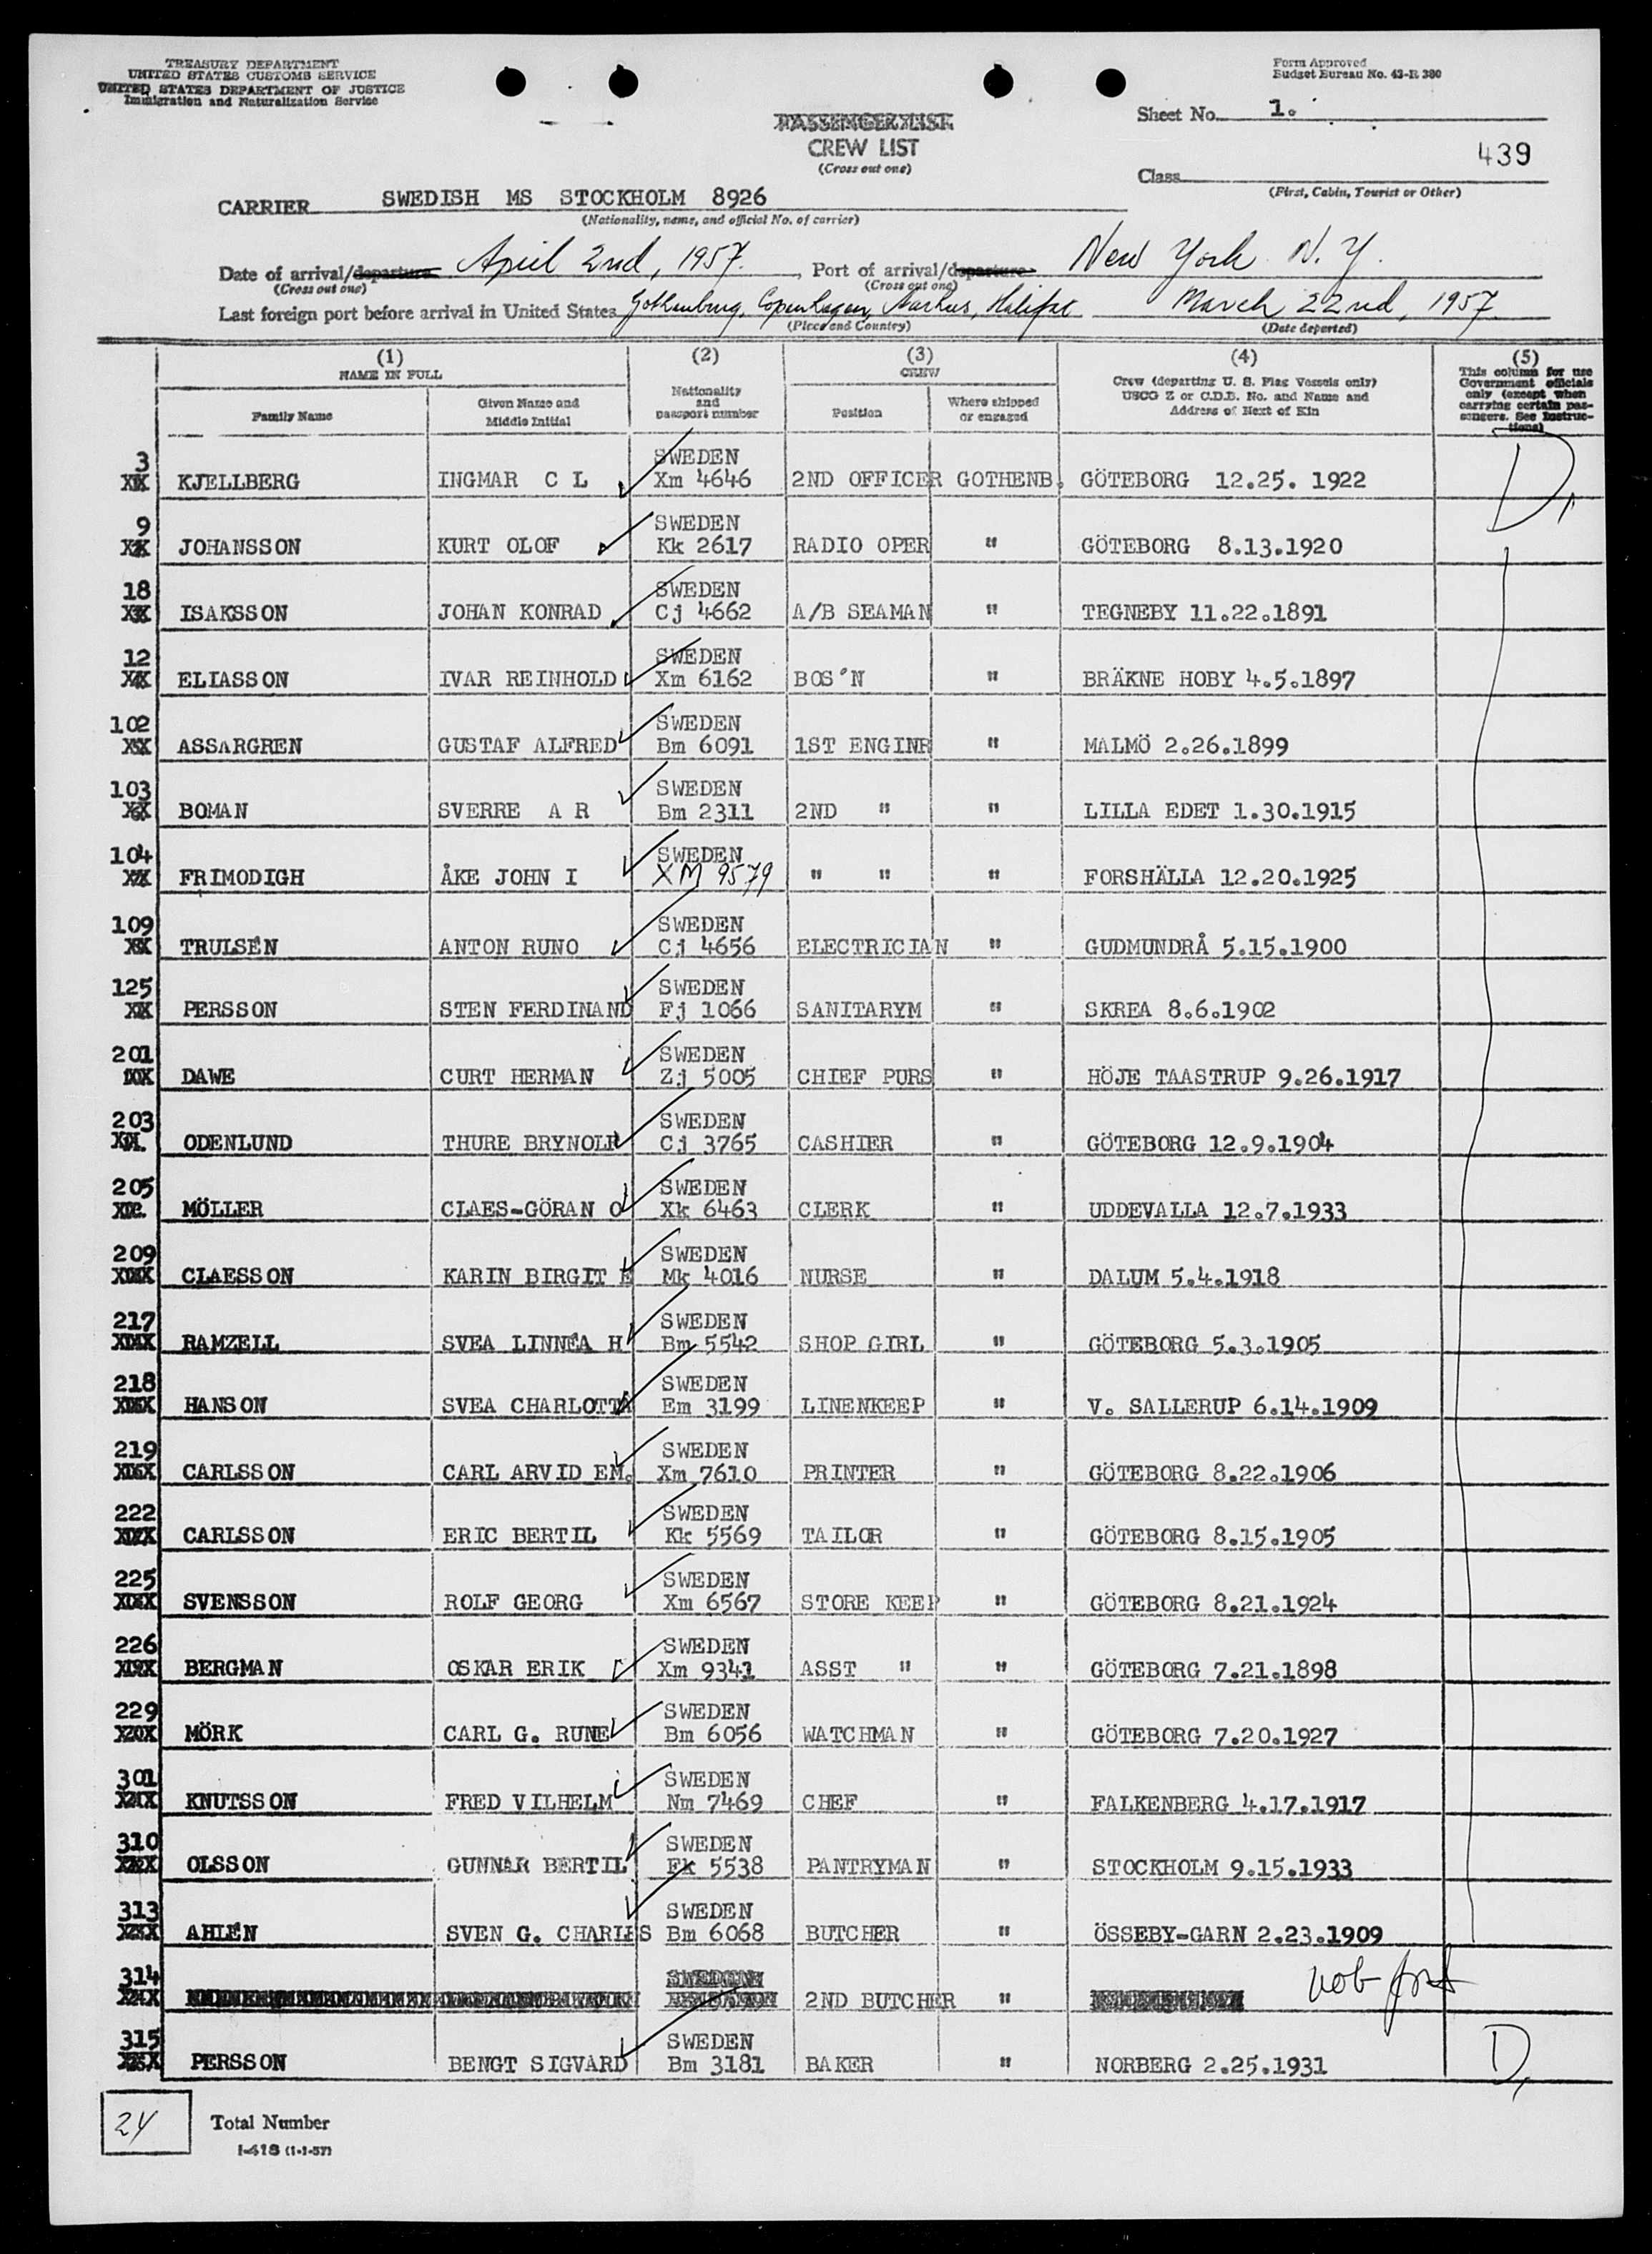 TREASURY DEPARTMENT
UNITED STATES CUSTOMS SERVICE
UNITED STATES DEPARTMENT OF JUSTICE
Immigration and Naturalization Service
Form Approved
Budget Bureau No. 43-R 380
Sheet No. 1.
PASSENGER LIST
CREW LIST
(Cross out one)
439
Class
(First, Cabin, Tourist or Other)
CARRIER SWEDISH MS STOCKHOLM 8926
(Nationality, name, and official No. of carrier)
Date of arrival/departure April 2nd, 1957. , Port of arrival/departure New York N.Y.
(Cross out one) (Cross out one)
Last foreign port before arrival in United States Gothenburg, Copenhagen, Aarhus, Halifax March 22nd, 1957
(Place and Country) (Date departed)
(1) (2) (3) (4) (5)
NAME IN FULL CREW
Family Name Given Name and Middle Initial Nationality and passport number Position Where shipped or engaged Crew (departing U. S. Flag Vessels only) USCG Z or C.D.B. No. and Name and Address of Next of Kin This column for use Government officials only (except when carrying certain passengers. See Instructions)
3 KJELLBERG INGMAR C L SWEDEN Xm 4646 2ND OFFICER GOTHENB. GÖTEBORG 12.25. 1922 D,
9 JOHANSSON KURT OLOF SWEDEN Kk 2617 RADIO OPER " GÖTEBORG 8.13.1920
18 ISAKSSON JOHAN KONRAD SWEDEN Cj 4662 A/B SEAMAN " TEGNEBY 11.22.1891
12 ELIASSON IVAR REINHOLD SWEDEN Xm 6162 BOS'N " BRÄKNE HOBY 4.5.1897
102 ASSARGREN GUSTAF ALFRED SWEDEN Bm 6091 1ST ENGINR " MALMÖ 2.26.1899
103 BOMAN SVERRE A R SWEDEN Bm 2311 2ND " " LILLA EDET 1.30.1915
104 FRIMODIGH ÅKE JOHN I SWEDEN XM 9579 " " " FORSHÄLLA 12.20.1925
109 TRULSÉN ANTON RUNO SWEDEN Cj 4656 ELECTRICIAN " GUDMUNDRÅ 5.15.1900
125 PERSSON STEN FERDINAND SWEDEN Fj 1066 SANITARYM " SKREA 8.6.1902
201 DAWE CURT HERMAN SWEDEN Zj 5005 CHIEF PURS " HÖJE TAASTRUP 9.26.1917
203 ODENLUND THURE BRYNOLF SWEDEN Cj 3765 CASHIER " GÖTEBORG 12.9.1904
205 MÖLLER CLAES-GÖRAN O SWEDEN Xk 6463 CLERK " UDDEVALLA 12.7.1933
209 CLAESSON KARIN BIRGIT E SWEDEN Mk 4016 NURSE " DALUM 5.4.1918
217 RAMZELL SVEA LINNÉA H SWEDEN Bm 5542 SHOP GIRL " GÖTEBORG 5.3.1905
218 HANSON SVEA CHARLOTTA SWEDEN Em 3199 LINENKEEP " V. SALLERUP 6.14.1909
219 CARLSSON CARL ARVID EM. SWEDEN Xm 7610 PRINTER " GÖTEBORG 8.22.1906
222 CARLSSON ERIC BERTIL SWEDEN Kk 5569 TAILOR " GÖTEBORG 8.15.1905
225 SVENSSON ROLF GEORG SWEDEN Xm 6567 STORE KEEP " GÖTEBORG 8.21.1924
226 BERGMAN OSKAR ERIK SWEDEN Xm 9341 ASST " " GÖTEBORG 7.21.1898
229 MÖRK CARL G. RUNE SWEDEN Bm 6056 WATCHMAN " GÖTEBORG 7.20.1927
301 KNUTSSON FRED VILHELM SWEDEN Nm 7469 CHEF " FALKENBERG 4.17.1917
310 OLSSON GUNNAR BERTIL SWEDEN Fk 5538 PANTRYMAN " STOCKHOLM 9.15.1933
313 AHLÉN SVEN G. CHARLES SWEDEN Bm 6068 BUTCHER " ÖSSEBY-GARN 2.23.1909
314 2ND BUTCHER "
315 PERSSON BENGT SIGVARD SWEDEN Bm 3181 BAKER " NORBERG 2.25.1931 D,
24 Total Number
I-418 (1-1-57)